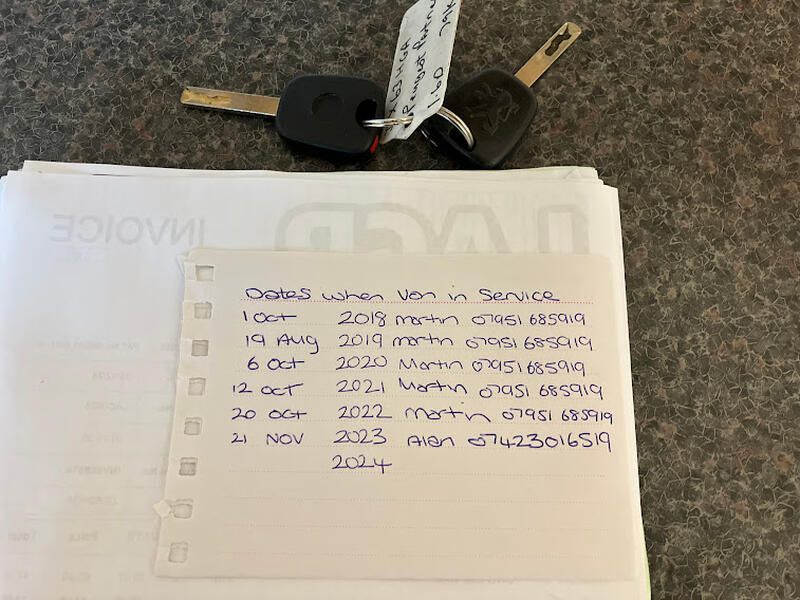 63 HGA
Peugeot Partner
1.60 79k
INVOICE
Dates when van in service
1 Oct 2018 Martin 07951 685919
19 Aug 2019 Martin 07951 685919
6 Oct 2020 Martin 07951 685919
12 Oct 2021 Martin 07951 685919
20 Oct 2022 Martin 07951 685919
21 Nov 2023 Alan 07423016519
2024